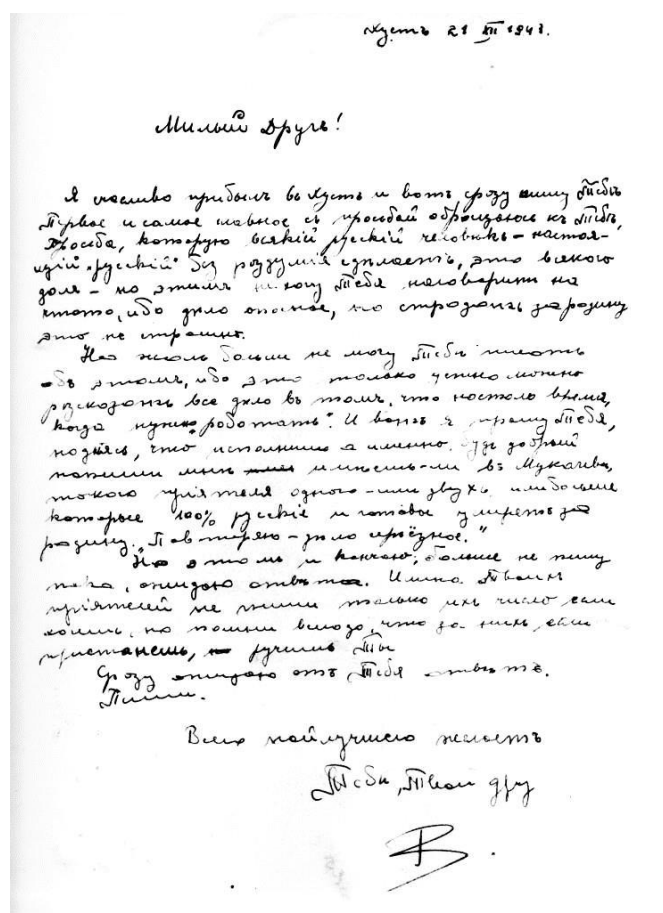 Хустъ 21 XII 1941.
Милый Другъ!
Я счасливо прибылъ въ Хустъ и вотъ сразу пишу Тебѣ
Первое и самое главное съ просьбой обращаюсь къ Тебѣ,
просьба, которую всякій русскій человѣкъ – настоя-
щій "русскій" без роздумія сдѣлаетъ, это всякого
доля – но этимъ не хочу Тебя наговорити на
чтото, ибо дѣло опасное, но страдать за родину
это не страшно.
На жаль больше не могу Тебѣ писать
объ этомъ, ибо это только устно можно
розсказать все дѣло въ томъ, что настало время,
когда нужно "роботать". И вотъ я прошу Тебя,
надѣясь, что исполниш а именно. Будь добрый
напиши мнѣ имѣешь-ли въ Мукачевѣ,
такого пріятеля одного – или двухъ или больше
которые 100% русскіе и готовые умереть за
родину. Повторяю – дѣло серьёзное."
На этомъ и кончаю, больше не пишу
пока, ожидаю отвѣта. Имена Твоихъ
пріятелей не пиши только ихъ число если
хочешь, но помни всегда, что за нихъ, если
пристанешь, ручишь Ты
Сразу ожидаю отъ Тебя отвѣтъ.
Пиши.
Всего найлучшего желаетъ
Тебѣ, Твой друг
В.